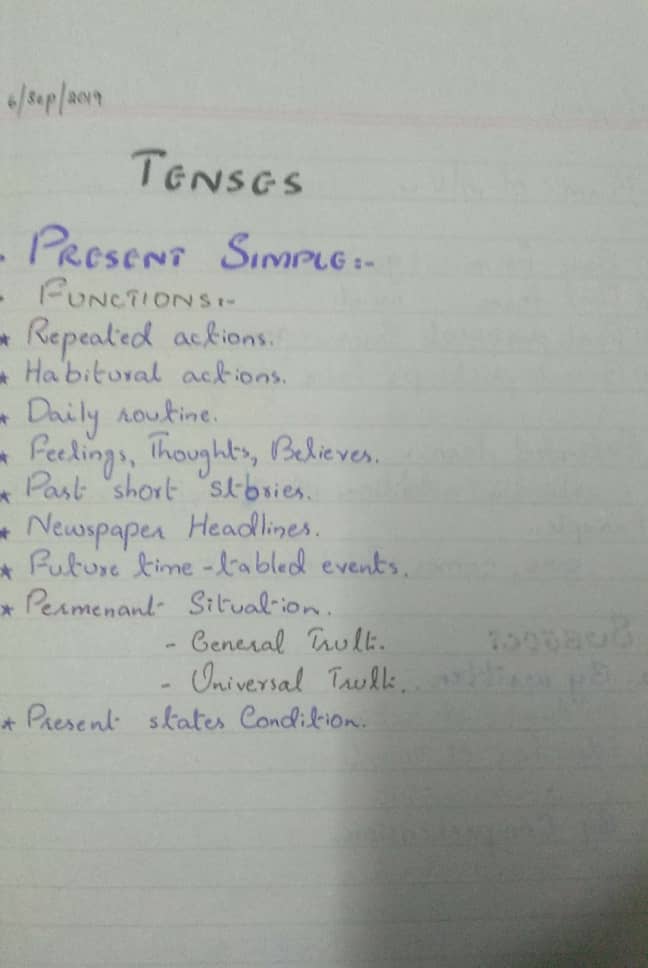 6/Sep/2019
TENSES
• PRESENT SIMPLE:-
• FUNCTIONS:-
* Repeated actions.
* Habitural actions.
* Daily routine.
* Feelings, Thoughts, Believes.
* Past short stories.
* Newspaper Headlines.
* Future time-tabled events.
* Permenant Situation.
- General Truth.
- Universal Truth.
* Present states Condition.